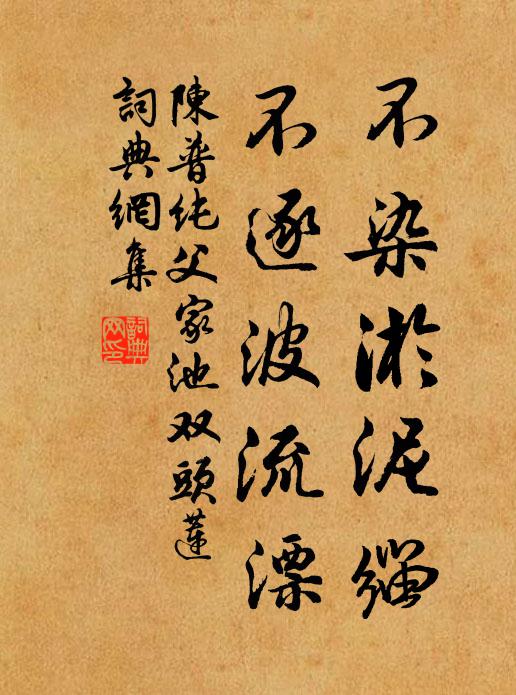 不染淤泥緇
不逐波流漂
陳普純父家池双頭蓮
詞典網集
詞典
网印